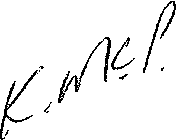 K. McP.